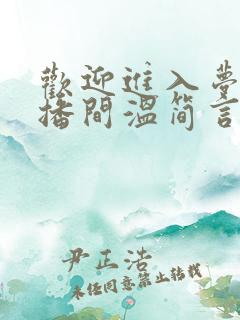 歡迎進入夢
播間溫简言
尹正浩
未任同意禁止转载